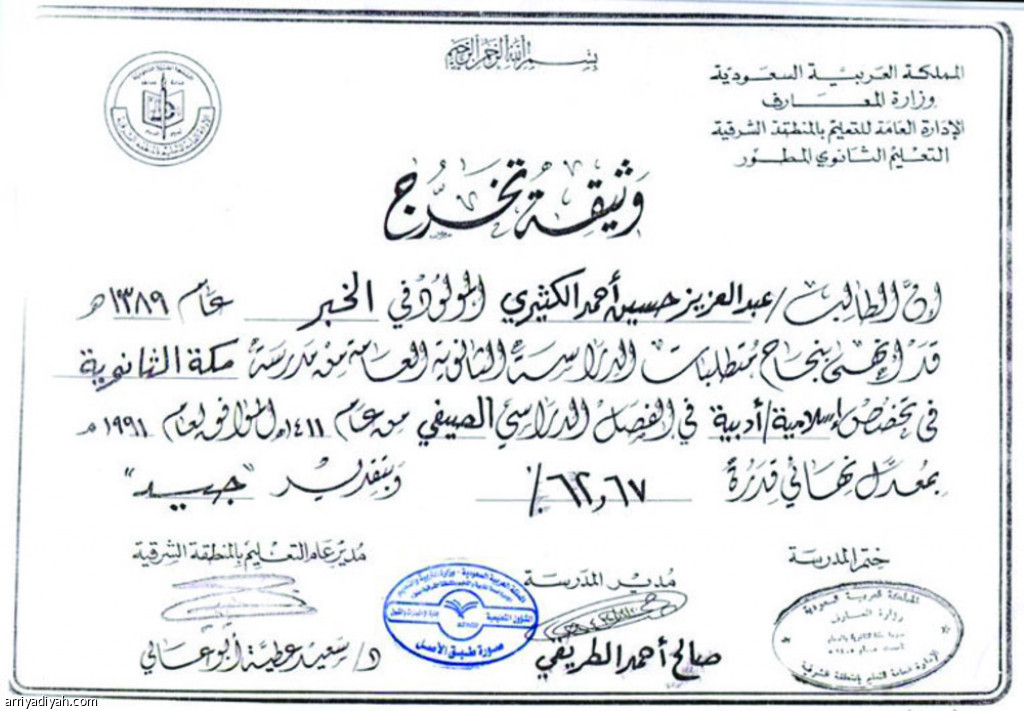 بسم الله الرحمن الرحيم
المملكة العربية السعودية
وزارة المعارف
الإدارة العامة للتعليم بالمنطقة الشرقية
التعليم الثانوي المطور
وثيقة تخرج
إن الطالب / عبدالعزيز حسين أحمد الكثيري المولود في الخبر عام ١٣٨٩ هـ
قد أنهى بنجاح متطلبات الدراسة الثانوية العامة من مدرسة مكة الثانوية
في تخصص إسلامية/أدبية في الفصل الدراسي الصيفي من عام ١٤١١هـ الموافق لعام ١٩٩١ م
بمعدل نهائي قدره ٦٢,٦٧ ٪ وبتقدير "جيد"
ختم المدرسة
مدير المدرسة
صالح أحمد الطريقي
مدير عام التعليم بالمنطقة الشرقية
د/ سعيد عطية أبو عالي
المملكة العربية السعودية
وزارة المعارف
صورة طبق الأصل
arriyadiyah.com